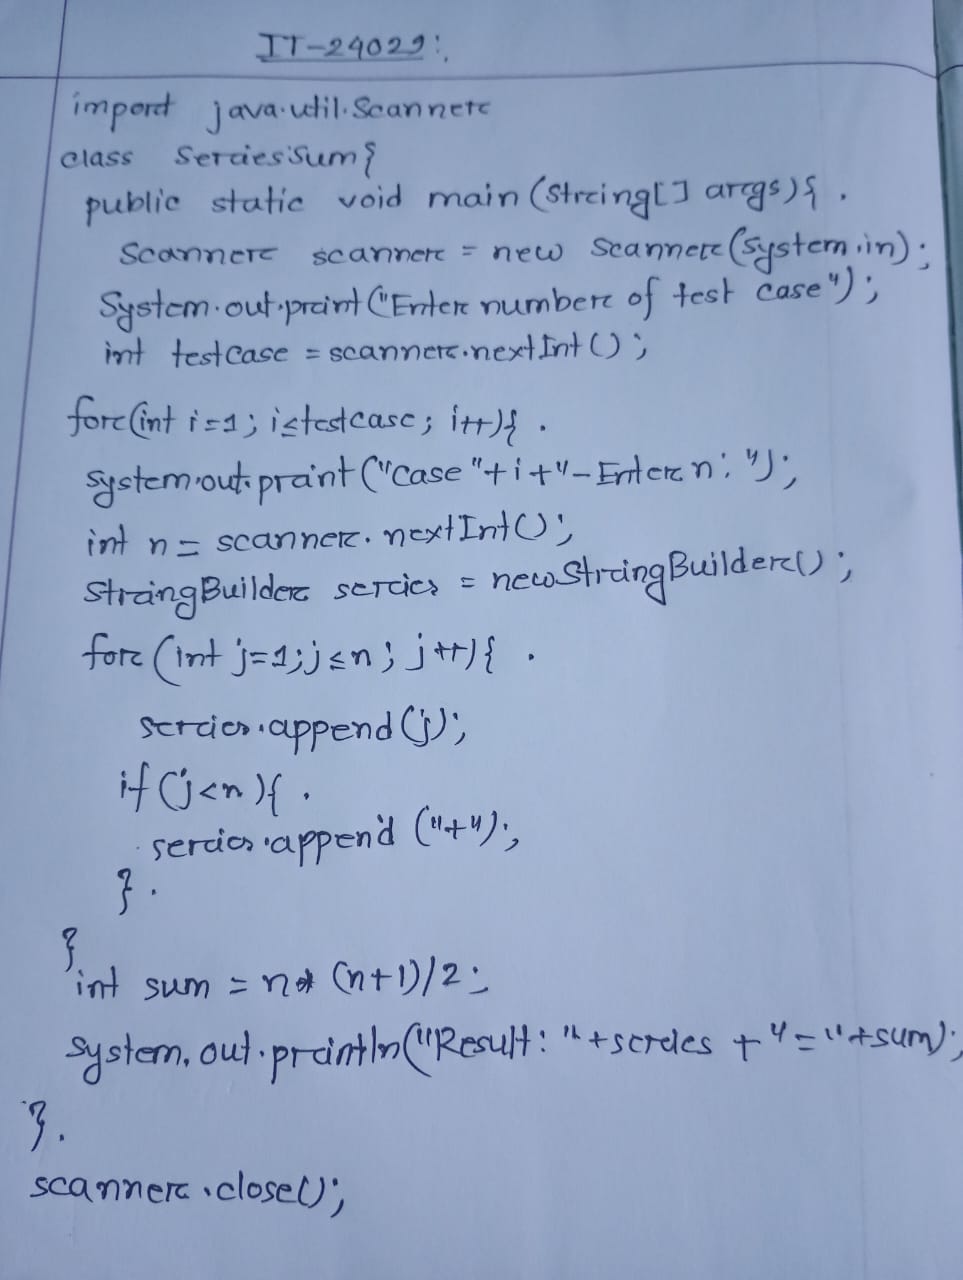 IT-24029:
import java.util.Scanner
class SeriesSum{
public static void main(String[] args){
Scanner scanner = new Scanner(System.in);
System.out.print("Enter number of test case");
int testCase = scanner.nextInt();
for(int i=1; i≤testcase; i++){
system.out.print("Case "+i+"-Enter n: ");
int n = scanner.nextInt();
StringBuilder series = new StringBuilder();
for(int j=1;j≤n; j++){
series.append(j);
if(j<n){
series.append("+");
}
}
int sum = n*(n+1)/2;
System.out.println("Result: "+series+"="+sum);
}
scanner.close();